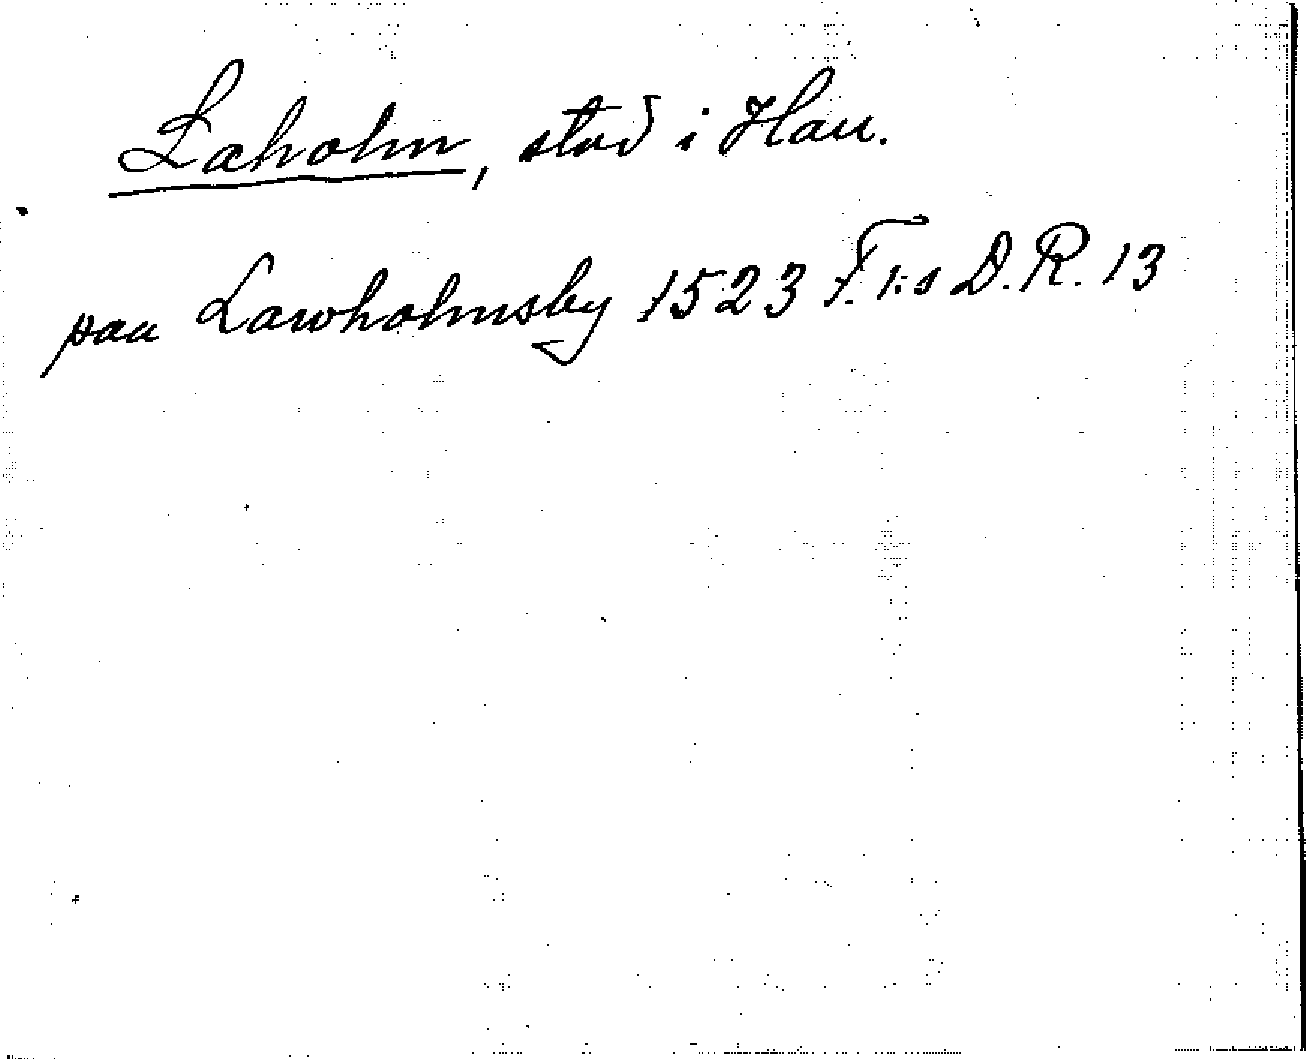 Laholm, stad i Hall.
paa Lawholmsby 1523 F. I:s D.R. 13